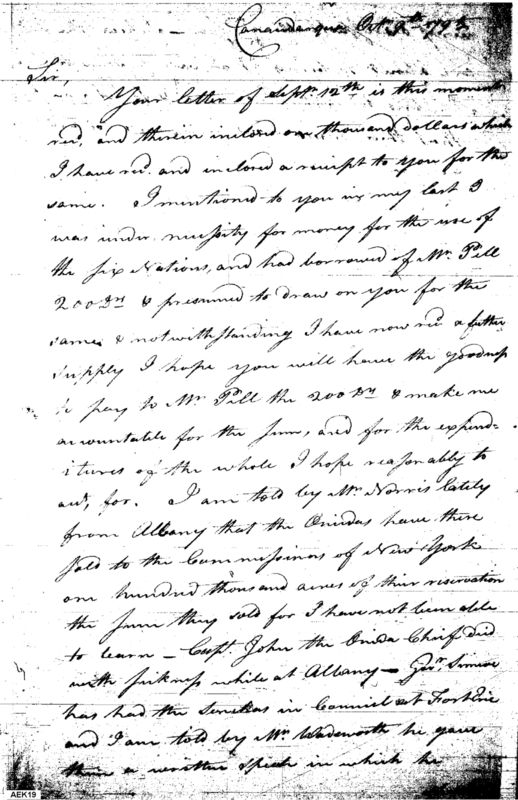 Canandarqua Octr. 9th 1795
Sir,
Your letter of Septr. 12th is this moment
recd, and therein inclosed one thousand dollars which
I have recd. and inclosed a receipt to you for the
same. I mentioned to you in my last I
was under necessity for money for the use of
the six Nations, and had borrowed of Mr. Pitt
200 Drs & presumed to draw on you for the
same & notwithstanding I have now recd a futher
supply I hope you will have the goodness
to pay to Mr. Pitt the 200 Drs & make me
accountable for the sum, and for the expend=
itures of the whole I hope reasonably to
act. for. I am told by Mr. Norris lately
from Albany that the Onidas have there
sold to the Commissinors of New York
one hundred thousand acres of their reservation
the sum they sold for I have not been able
to learn — Capt. John the Onida Chief died
with sickness while at Albany — Govr. Simcoe
has had the Senekas in Council at Fort Erie
and I am told by Mr. Wadsworth he gave
them a written speech in which he
AEK19